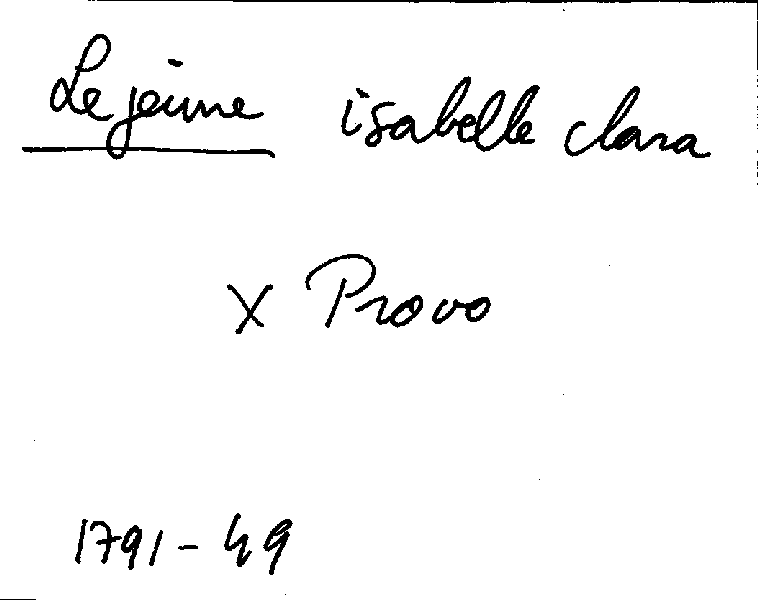 Lejeune isabelle clara
x Provo
1791-49